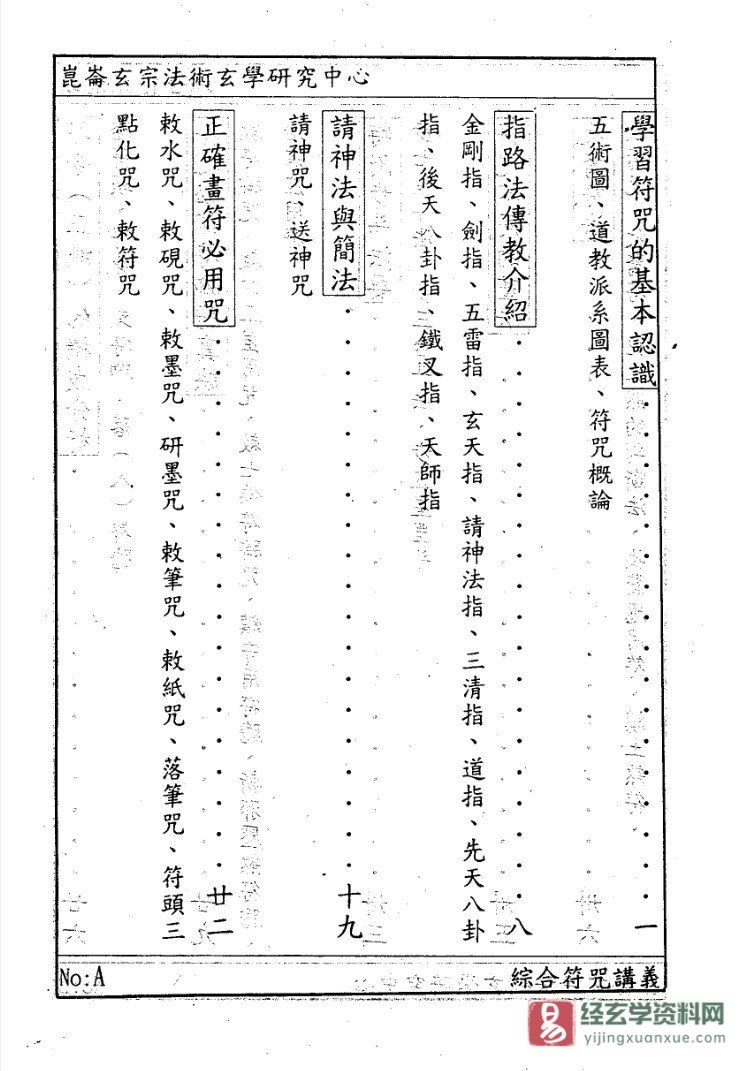 崑崙玄宗法術玄學研究中心
學習符咒的基本認識・・・・・・・・・・・・・・・・・・・一
五術圖、道教派系圖表、符咒概論
指路法傳教介紹・・・・・・・・・・・・・・・・・・・・八
金剛指、劍指、五雷指、玄天指、請神法指、三清指、道指、先天八卦
指、後天八卦指、鐵叉指、天師指
請神法與簡法・・・・・・・・・・・・・・・・・・・・十九
請神咒、送神咒
正確畫符必用咒・・・・・・・・・・・・・・・・・・・廿二
敕水咒、敕硯咒、敕墨咒、研墨咒、敕筆咒、敕紙咒、落筆咒、符頭三
點化咒、敕符咒
綜合符咒講義
No:A
易
经玄学资料网
yijingxuanxue.com